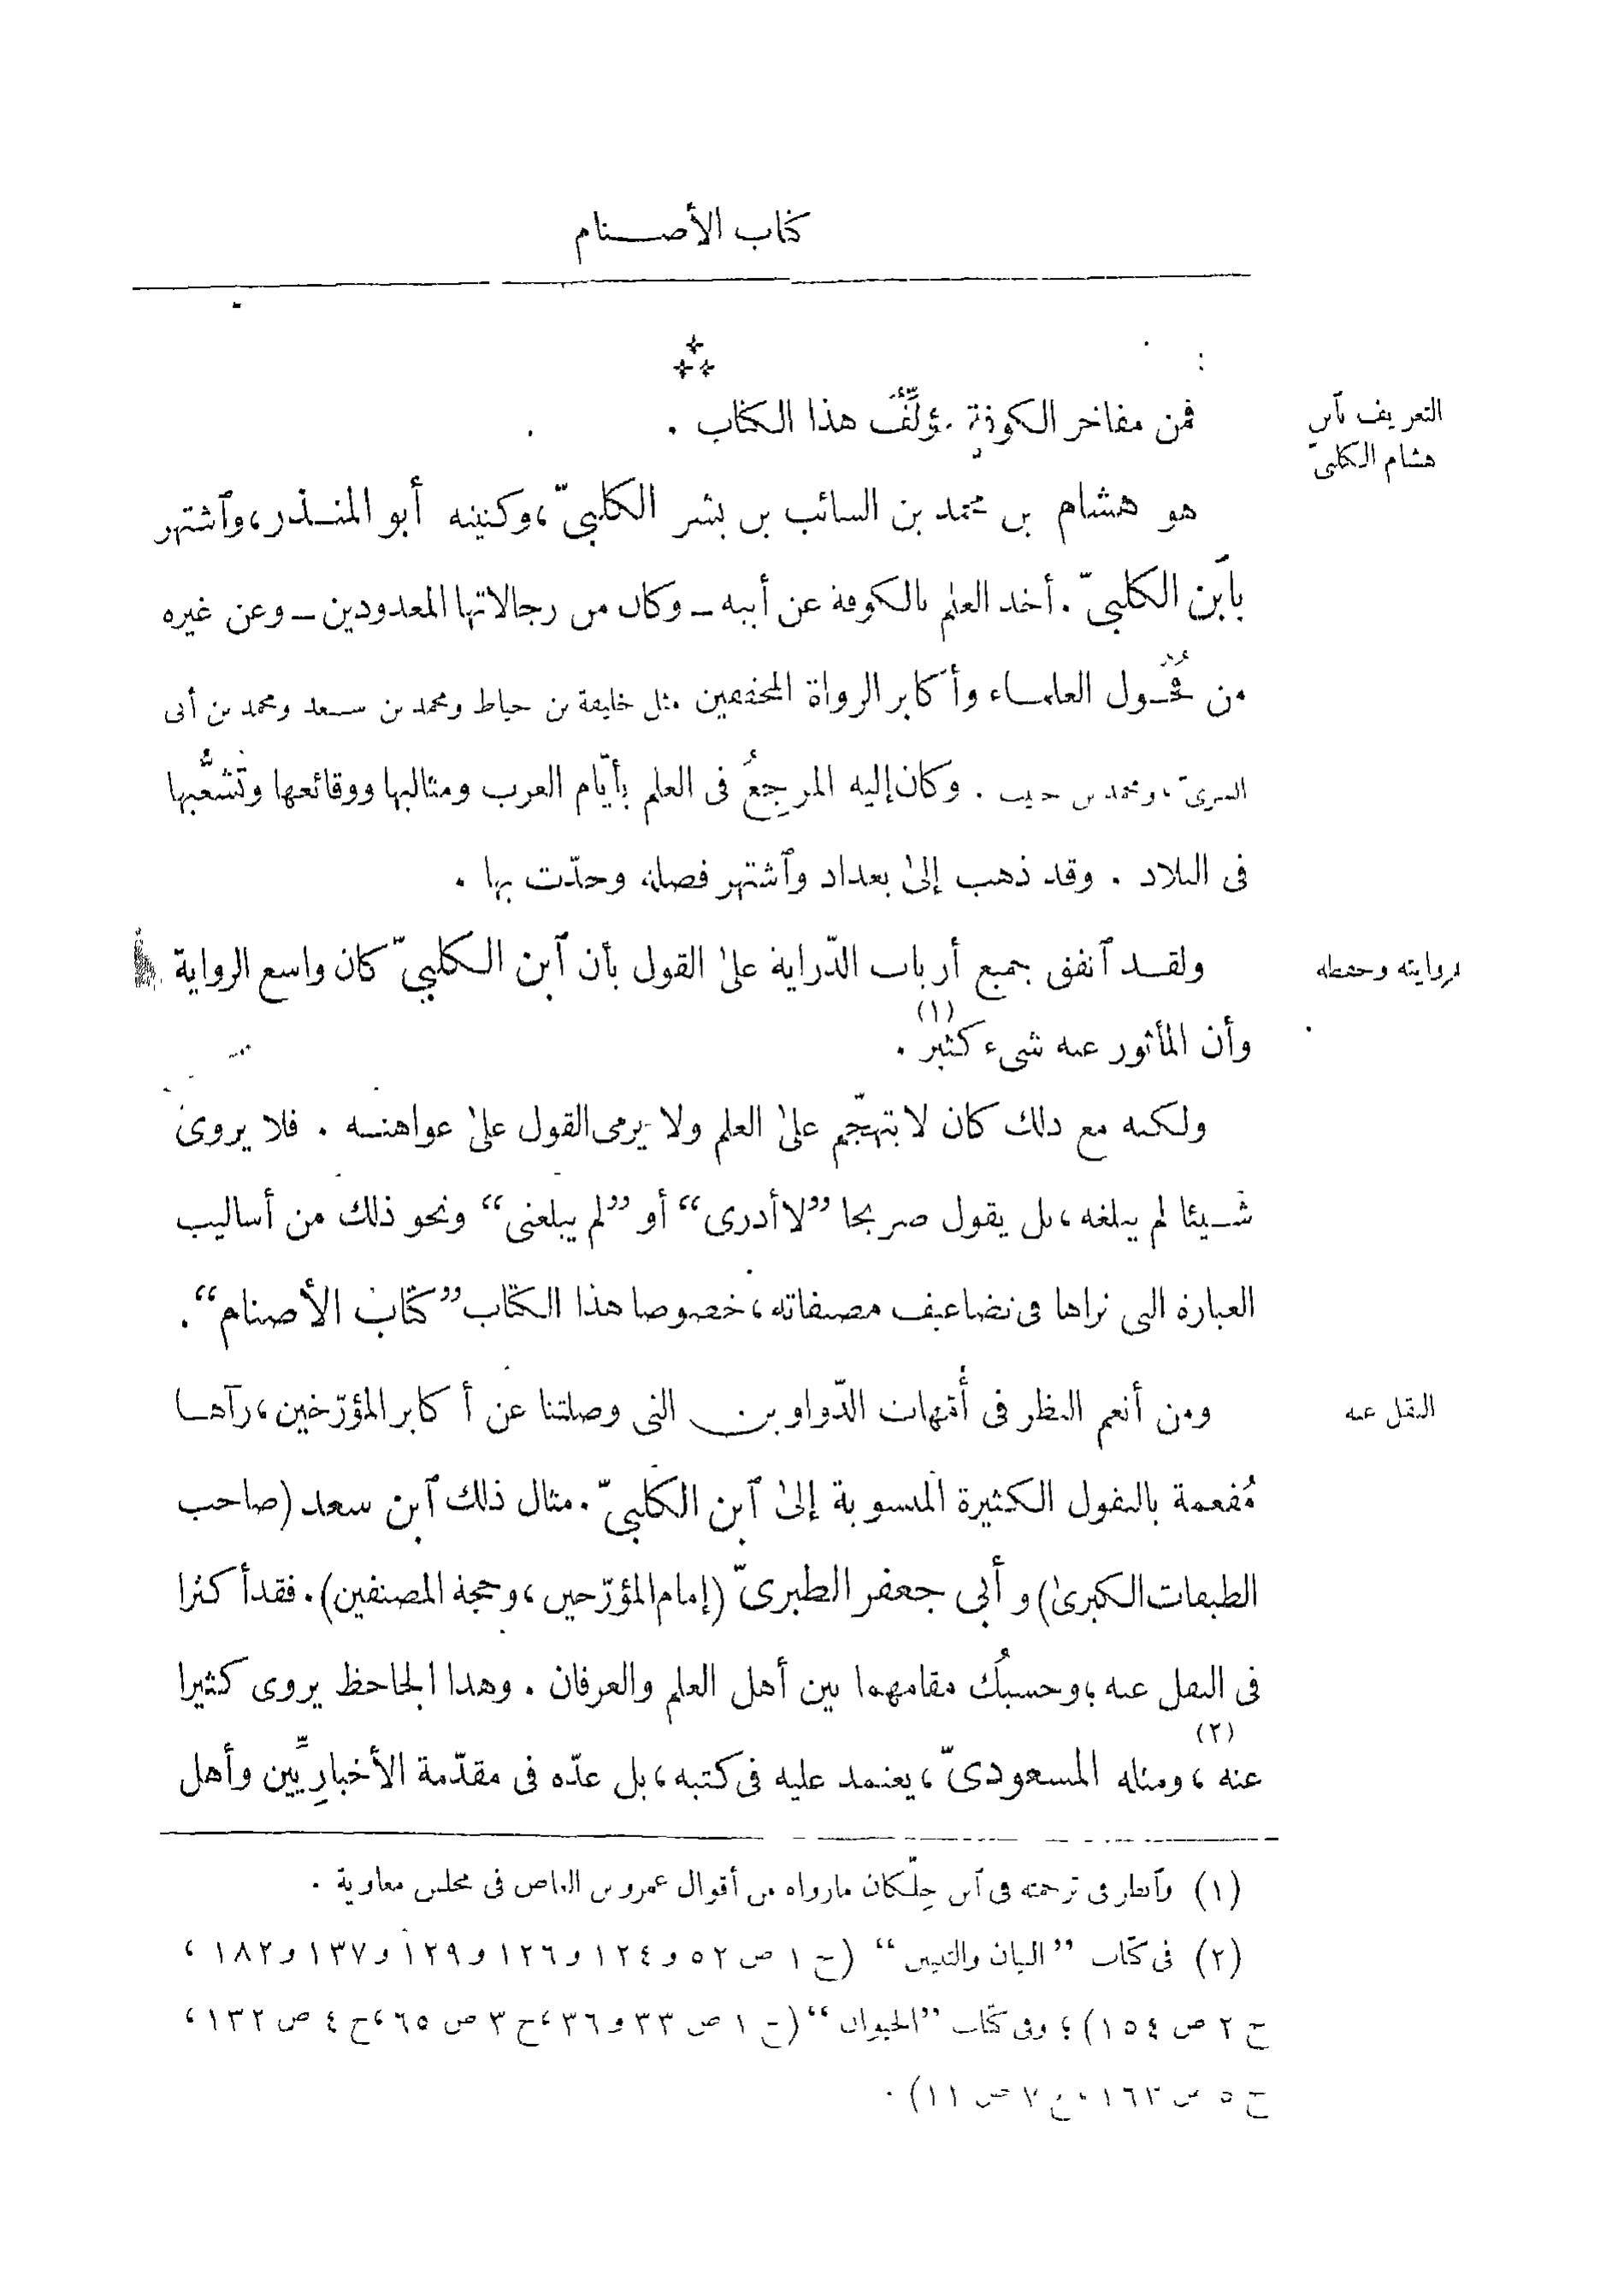 كتاب الأصنام
فمن مفاخر الكوفة مؤلِّفُ هذا الكتاب .
التعريف بابن
هشام الكلبىّ
هو هشام بن محمد بن السائب بن بشر الكلبىّ، وكنيته أبو المنذر، وٱشتهر
بٱبن الكلبىّ . أخذ العلم بالكوفة عن أبيه ــ وكان من رجالاتها المعدودين ــ وعن غيره
من فُحُول العلماء وأكابر الرواة المحققين مثل خليفة بن خياط ومحمد بن سعد ومحمد بن أبى
السرىّ، ومحمد بن حبيب . وكان إليه المرجِعُ فى العلم بأيّام العرب ومثالبها ووقائعها وتَشعُّبها
فى البلاد . وقد ذهب إلىٰ بغداد وٱشتهر فضله وحدّث بها .
روايته وحفظه
ولقد ٱتفق جميع أرباب الدّراية علىٰ القول بأن ٱبن الكلبىّ كان واسع الرواية
وأن المأثور عنه شىء كثير (١) .
ولكنه مع ذلك كان لا يتهجّم علىٰ العلم ولا يرمى القول علىٰ عواهنه . فلا يروى
شيئا لم يبلغه، بل يقول صريحا ”لا أدرى“ أو ”لم يبلغنى“ ونحو ذلك من أساليب
العبارة التى نراها فى تضاعيف مصنفاته، خصوصا هذا الكتاب ”كتاب الأصنام“.
النقل عنه
ومن أنعم النظر فى أُمّهات الدّواوين التى وصلتنا عن أكابر المؤرّخين، رآها
مُفعمة بالنقول الكثيرة المنسوبة إلىٰ ٱبن الكلبىّ . مثال ذلك ٱبن سعد (صاحب
الطبقات الكبرىٰ) و أبى جعفر الطبرىّ (إمام المؤرّخين، وحجة المصنفين) . فقد أكثرا
فى النقل عنه؛ وحسبُك مقامهما بين أهل العلم والعرفان . وهذا الجاحظ يروى كثيرا
عنه (٢)، ومثله المسعودىّ، يعتمد عليه فى كتبه، بل عدّه فى مقدّمة الأخبارِيِّين وأهل
(١) وٱنظر فى ترجمته فى ٱبن خِلّكان مارواه من أقوال عمرو بن العاص فى مجلس معاوية .
(٢) فى كتاب ”البيان والتبيين“ (ج ١ ص ٥٢ و ١٢٤ و ١٢٦ و ١٢٩ و ١٣٧ و ١٨٢ ،
ج ٢ ص ١٥٤) ؛ وفى كتاب ”الحيوان“ (ج ١ ص ٣٣ و ٣٦، ج ٣ ص ٦٥، ج ٤ ص ١٣٢ ،
ج ٥ ص ١٦٣ ، ج ٧ ص ١١) .